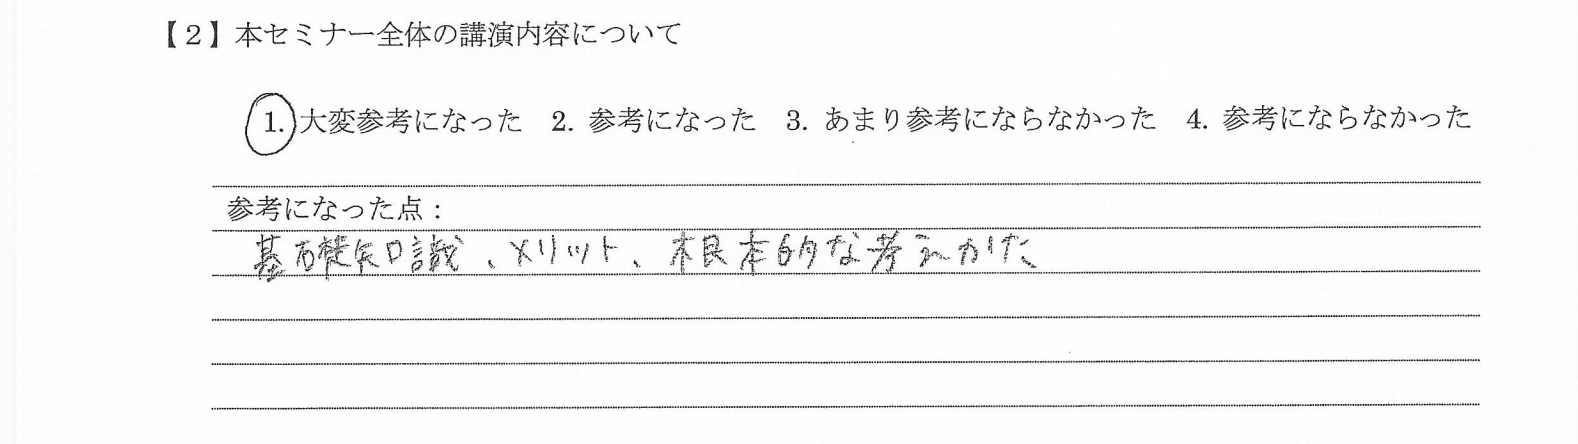 【2】本セミナー全体の講演内容について
1. 大変参考になった 2. 参考になった 3. あまり参考にならなかった 4. 参考にならなかった
参考になった点：
基礎知識、メリット、根本的な考えかた